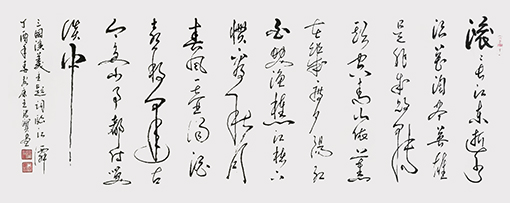 滚滚长江东逝水
浪花淘尽英雄
是非成败转
头空青山依旧
在几度夕阳红
白发渔樵江渚上
惯看秋月
春风一壶浊酒
喜相逢古
今多少事都付笑
谈中
三国演义主题词临江仙
丁酉年春